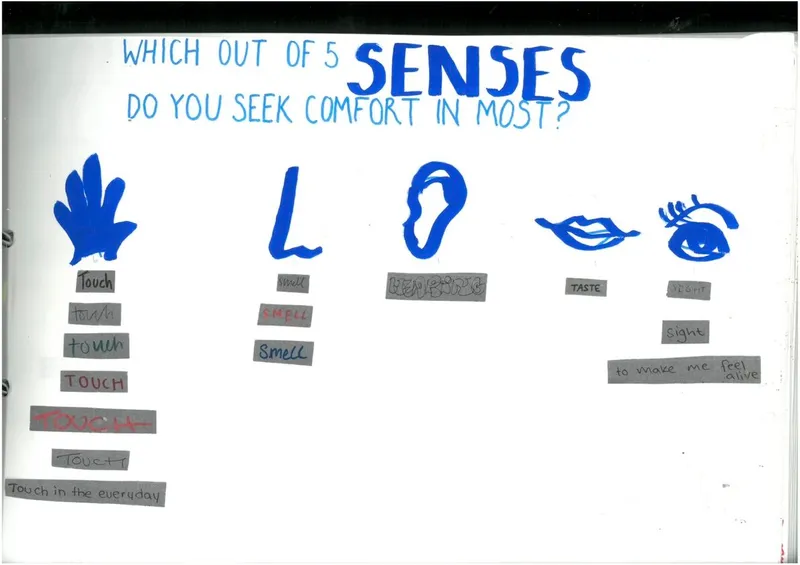 WHICH OUT OF 5 SENSES
DO YOU SEEK COMFORT IN MOST?
Touch
touch
touch
TOUCH
TOUCH
TOUCH
Touch in the everyday
smell
SMELL
Smell
HEARING
TASTE
SIGHT
sight
to make me feel
alive